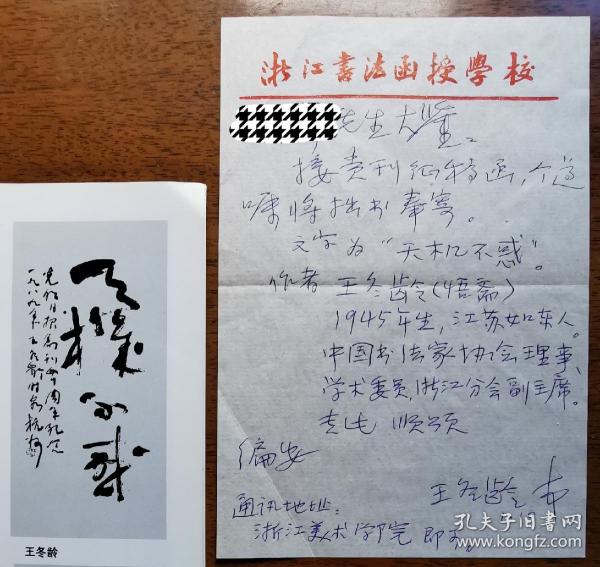 浙江書法函授學校
先生大鉴：
接贵刊征稿函，今遵
嘱将拙书奉寄。
文字为“天机不惑”。
作者 王冬龄（悟斋）
1945年生，江苏如东人。
中国书法家协会理事、
学术委员，浙江分会副主席。
专此 顺颂
编安
王冬龄
通讯地址：
浙江美术学院
天機不惑
王冬龄
孔夫子旧书网
www.kongfz.com